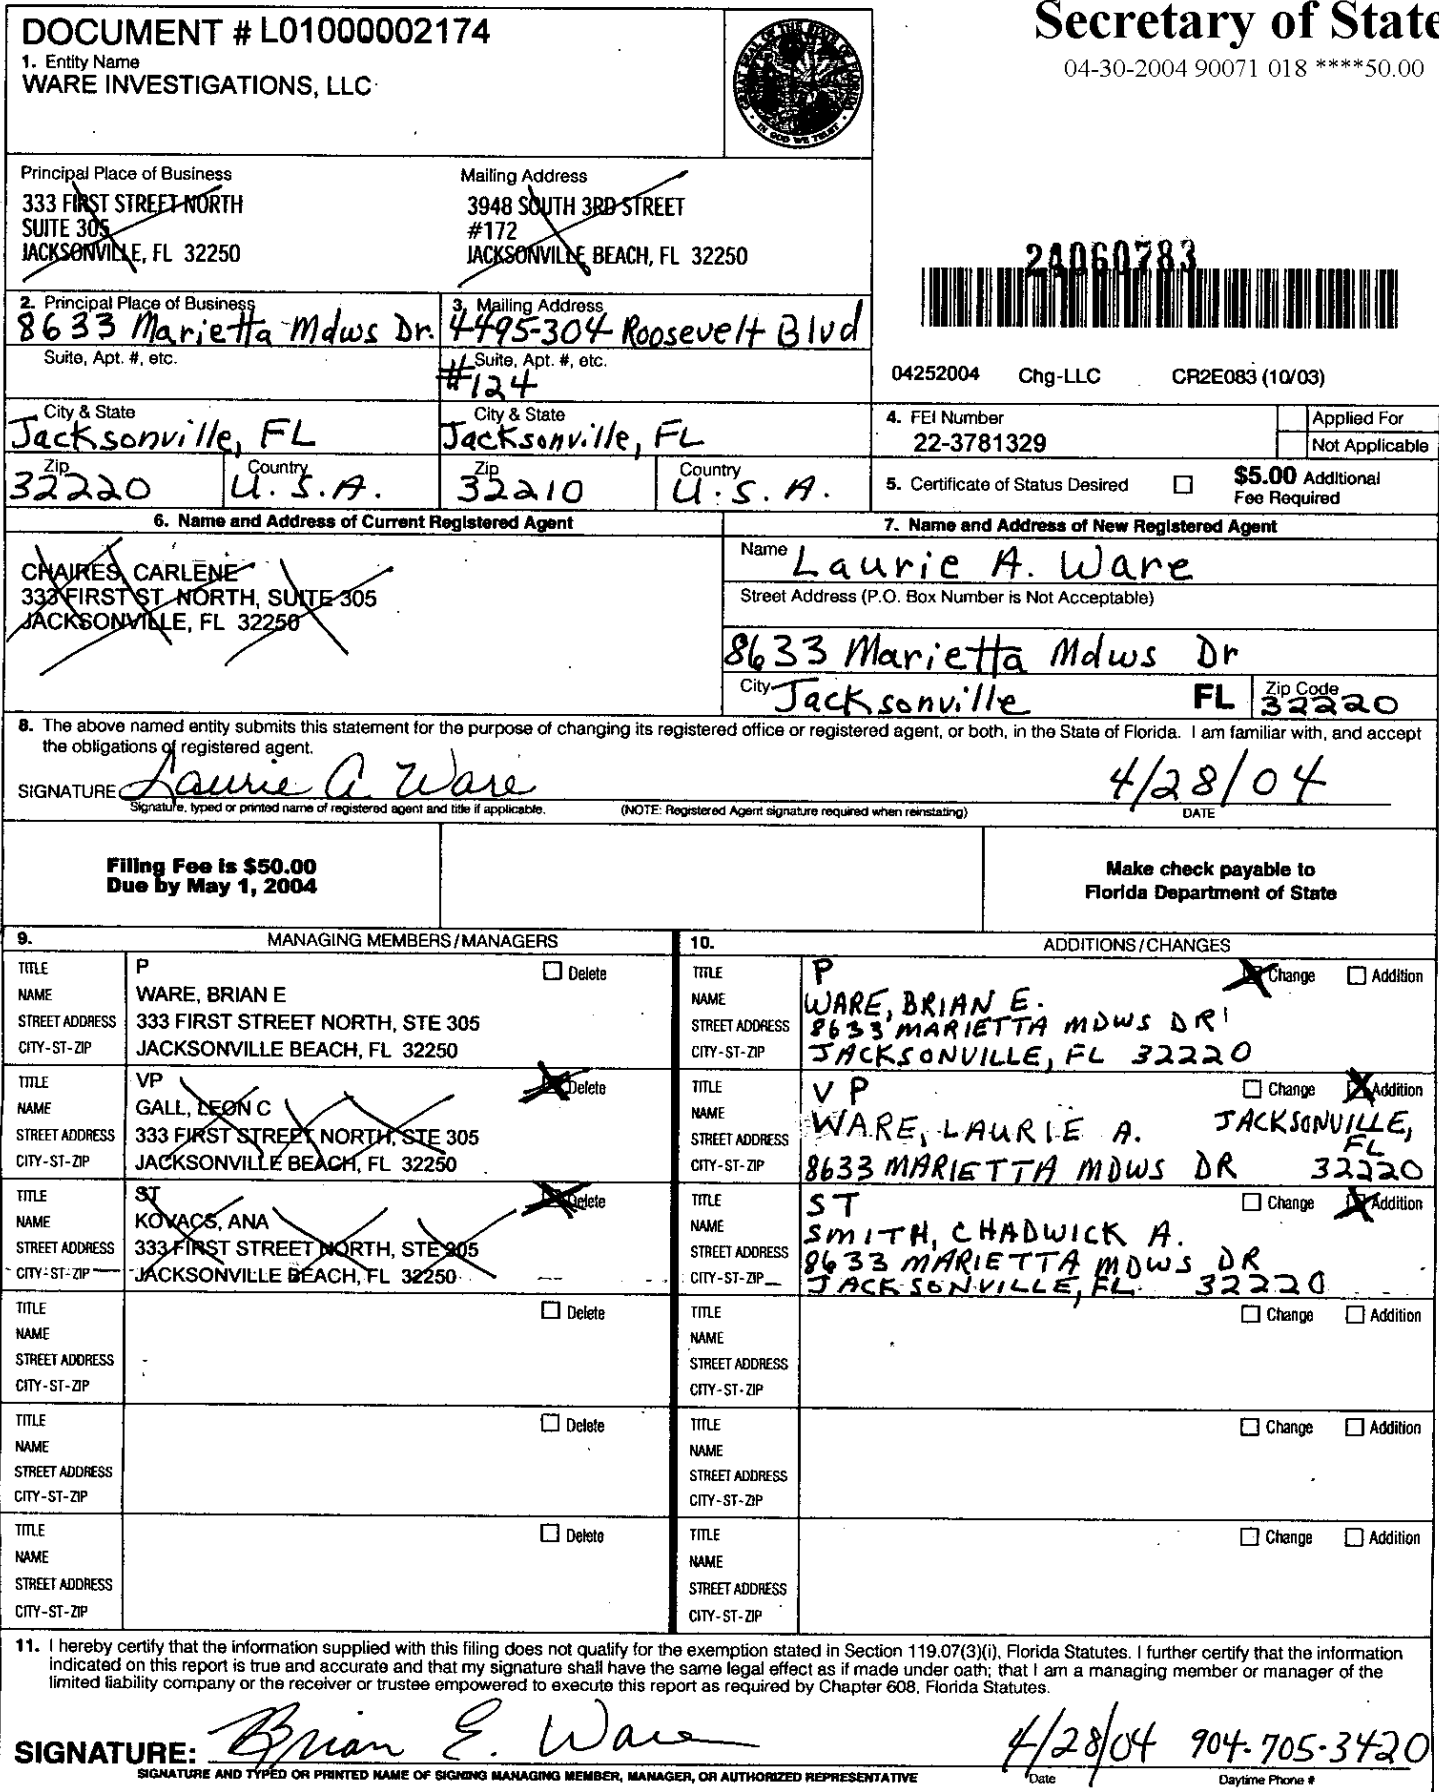 Secretary of State
04-30-2004 90071 018 ****50.00
DOCUMENT # L01000002174
1. Entity Name
WARE INVESTIGATIONS, LLC
GREAT SEAL OF THE STATE OF FLORIDA
IN GOD WE TRUST
Principal Place of Business
333 FIRST STREET NORTH
SUITE 305
JACKSONVILLE, FL 32250
Mailing Address
3948 SOUTH 3RD STREET
#172
JACKSONVILLE BEACH, FL 32250
24060783
2. Principal Place of Business
8633 Marietta Mdws Dr.
Suite, Apt. #, etc.
City & State
Jacksonville, FL
Zip
32220
Country
U.S.A.
3. Mailing Address
4495-304 Roosevelt Blvd
Suite, Apt. #, etc.
#124
City & State
Jacksonville, FL
Zip
32210
Country
U.S.A.
04252004 Chg-LLC CR2E083 (10/03)
4. FEI Number
22-3781329
Applied For
Not Applicable
5. Certificate of Status Desired
$5.00 Additional
Fee Required
6. Name and Address of Current Registered Agent
CHAIRES, CARLENE
333 FIRST ST NORTH, SUITE 305
JACKSONVILLE, FL 32250
7. Name and Address of New Registered Agent
Name
Laurie A. Ware
Street Address (P.O. Box Number is Not Acceptable)
8633 Marietta Mdws Dr
City
Jacksonville
FL
Zip Code
32220
8. The above named entity submits this statement for the purpose of changing its registered office or registered agent, or both, in the State of Florida. I am familiar with, and accept
the obligations of registered agent.
SIGNATURE Laurie A. Ware 4/28/04
Signature, typed or printed name of registered agent and title if applicable. (NOTE: Registered Agent signature required when reinstating) DATE
Filing Fee is $50.00
Due by May 1, 2004
Make check payable to
Florida Department of State
9. MANAGING MEMBERS/MANAGERS
TITLE P Delete
NAME WARE, BRIAN E
STREET ADDRESS 333 FIRST STREET NORTH, STE 305
CITY-ST-ZIP JACKSONVILLE BEACH, FL 32250
TITLE VP Delete
NAME GALL, LEON C
STREET ADDRESS 333 FIRST STREET NORTH, STE 305
CITY-ST-ZIP JACKSONVILLE BEACH, FL 32250
TITLE ST Delete
NAME KOVACS, ANA
STREET ADDRESS 333 FIRST STREET NORTH, STE 305
CITY-ST-ZIP JACKSONVILLE BEACH, FL 32250
TITLE Delete
NAME
STREET ADDRESS
CITY-ST-ZIP
TITLE Delete
NAME
STREET ADDRESS
CITY-ST-ZIP
TITLE Delete
NAME
STREET ADDRESS
CITY-ST-ZIP
10. ADDITIONS/CHANGES
TITLE P Change Addition
NAME WARE, BRIAN E.
STREET ADDRESS 8633 MARIETTA MDWS DR
CITY-ST-ZIP JACKSONVILLE, FL 32220
TITLE VP Change Addition
NAME WARE, LAURIE A. JACKSONVILLE,
STREET ADDRESS FL
CITY-ST-ZIP 8633 MARIETTA MDWS DR 32220
TITLE ST Change Addition
NAME SMITH, CHADWICK A.
STREET ADDRESS 8633 MARIETTA MDWS DR
CITY-ST-ZIP JACKSONVILLE, FL 32220
TITLE Change Addition
NAME
STREET ADDRESS
CITY-ST-ZIP
TITLE Change Addition
NAME
STREET ADDRESS
CITY-ST-ZIP
TITLE Change Addition
NAME
STREET ADDRESS
CITY-ST-ZIP
11. I hereby certify that the information supplied with this filing does not qualify for the exemption stated in Section 119.07(3)(i), Florida Statutes. I further certify that the information
indicated on this report is true and accurate and that my signature shall have the same legal effect as if made under oath; that I am a managing member or manager of the
limited liability company or the receiver or trustee empowered to execute this report as required by Chapter 608, Florida Statutes.
SIGNATURE: Brian E. Ware 4/28/04 904-705-3420
SIGNATURE AND TYPED OR PRINTED NAME OF SIGNING MANAGING MEMBER, MANAGER, OR AUTHORIZED REPRESENTATIVE Date Daytime Phone #